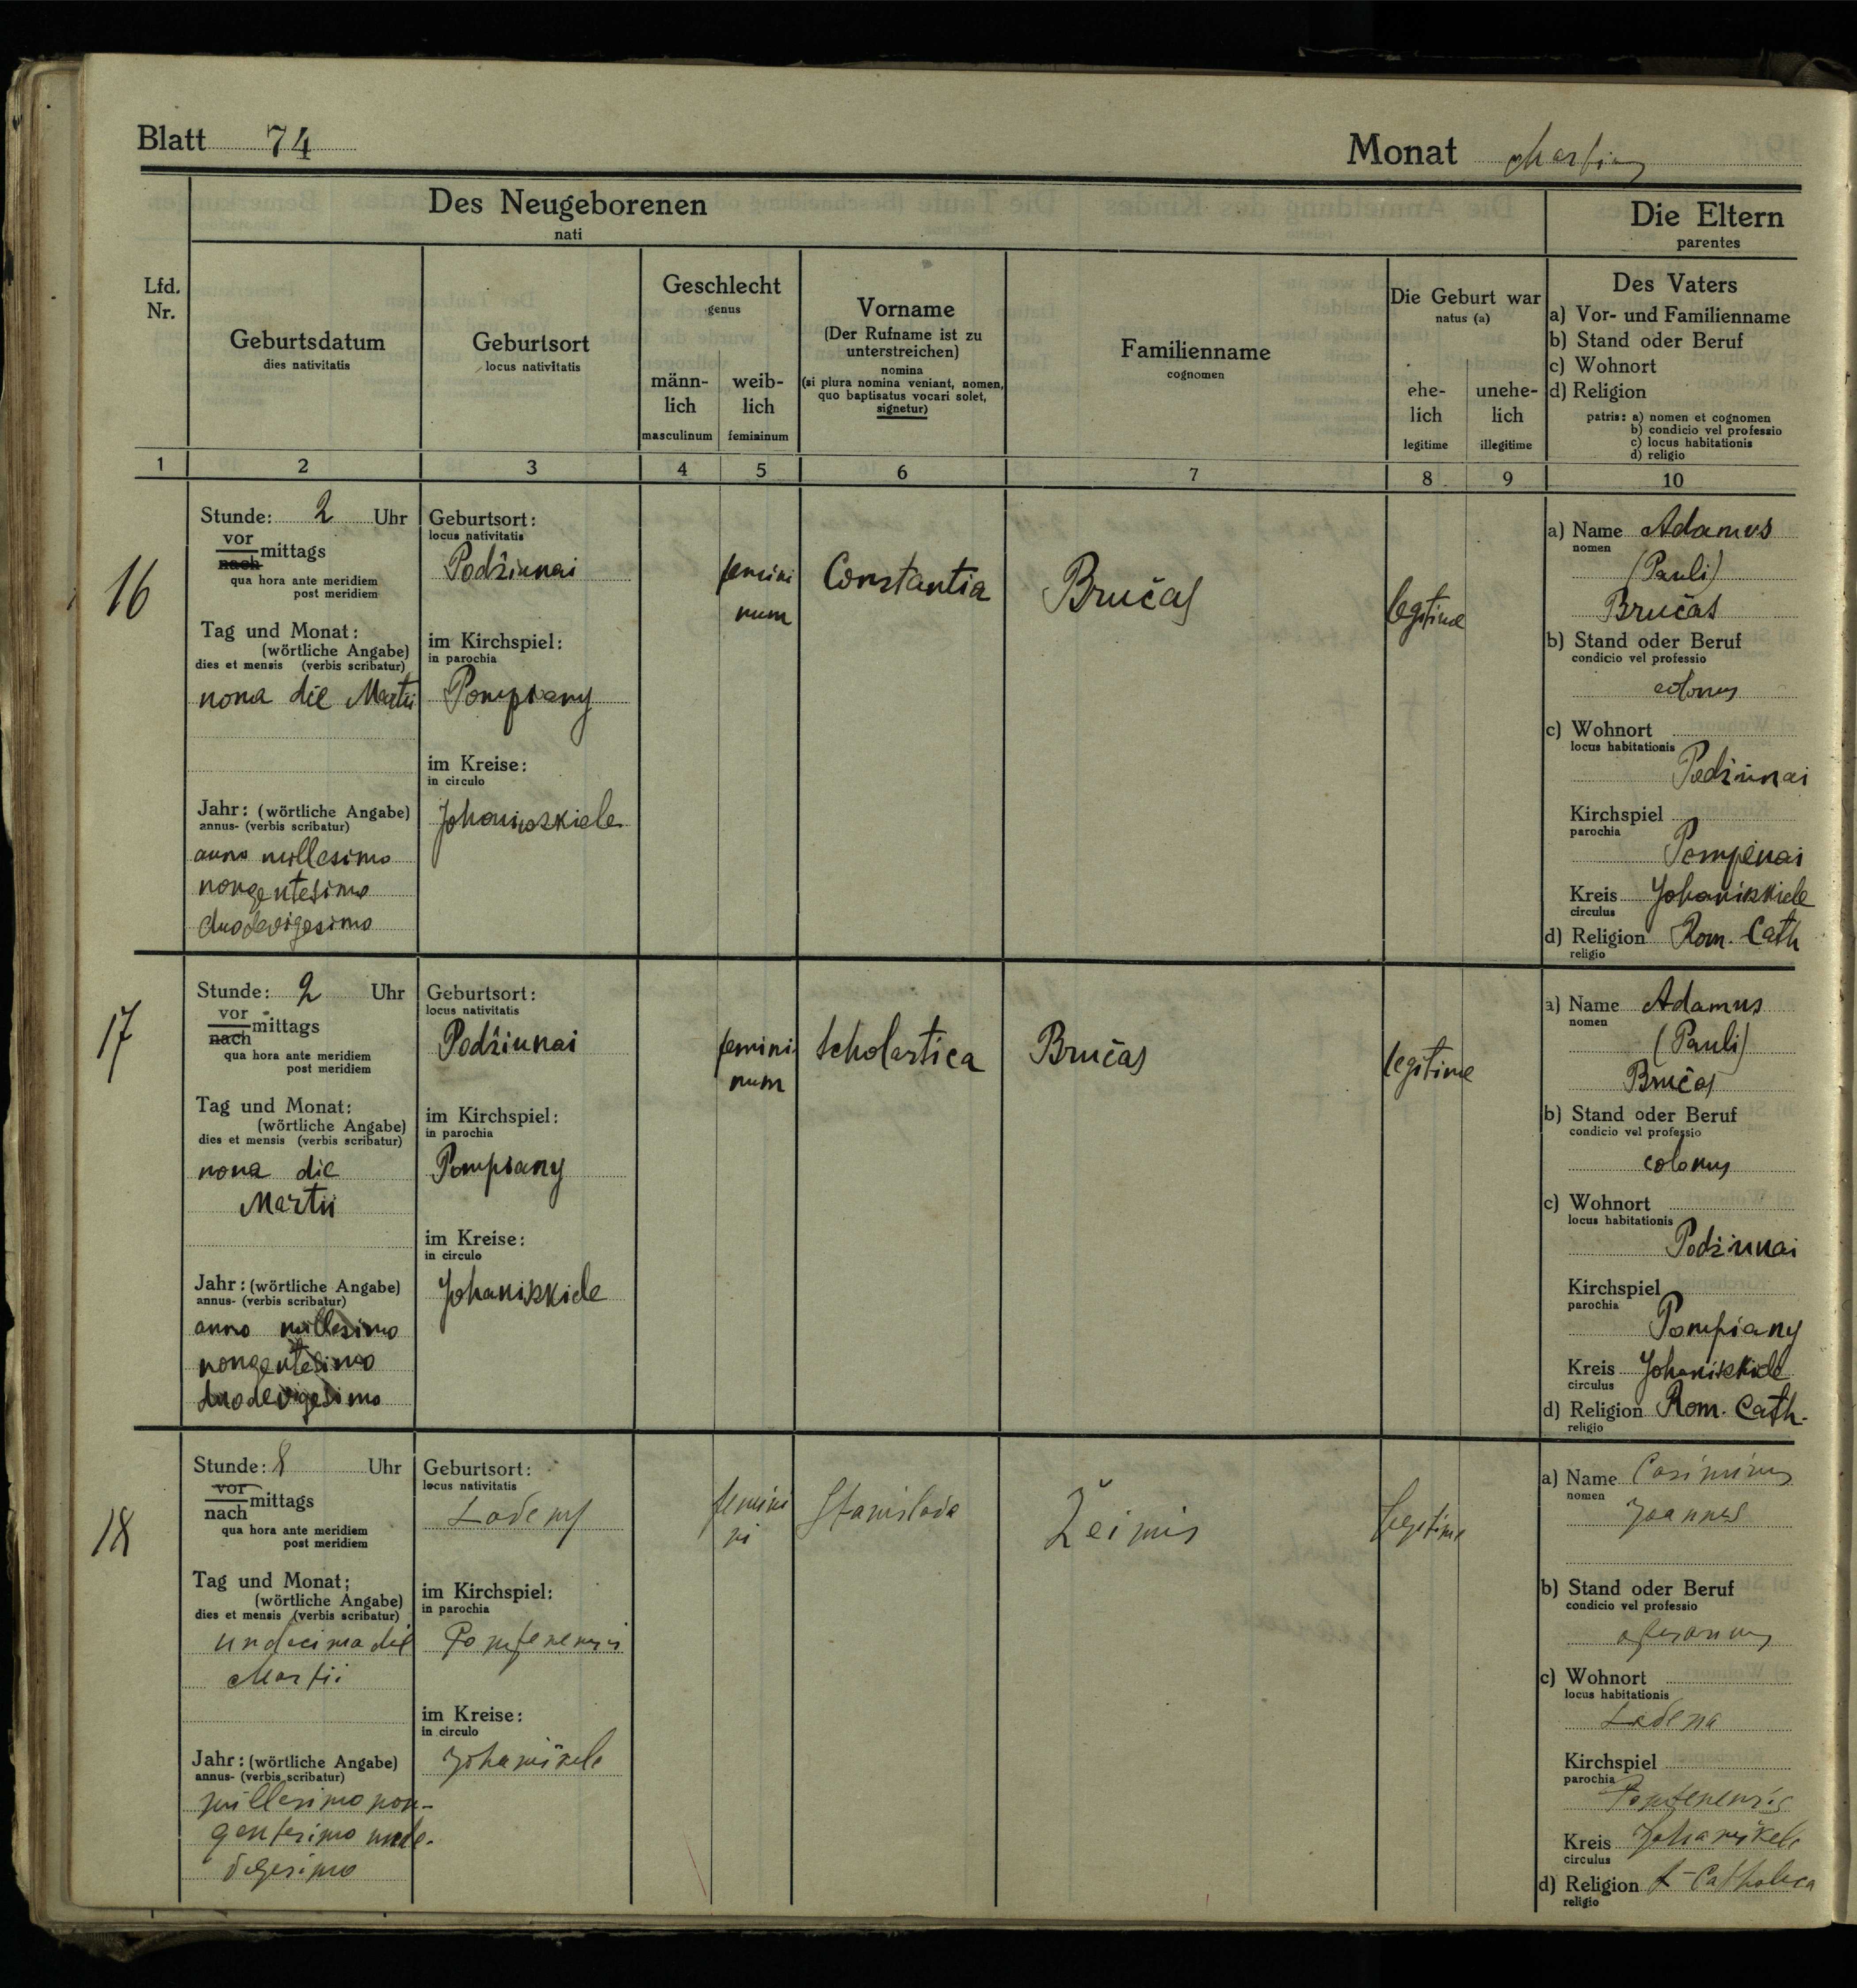 Blatt 74
Monat Martius
Des Neugeborenen
nati
Die Eltern
parentes
Lfd. Nr.
Geburtsdatum
dies nativitatis
Geburtsort
locus nativitatis
Geschlecht
genus
männ-
lich
masculinum
weib-
lich
femininum
Vorname
(Der Rufname ist zu
unterstreichen)
nomina
(si plura nomina veniant, nomen,
quo baptisatus vocari solet,
signetur)
Familienname
cognomen
Die Geburt war
natus (a)
ehe-
lich
legitime
unehe-
lich
illegitime
Des Vaters
a) Vor- und Familienname
b) Stand oder Beruf
c) Wohnort
d) Religion
patris: a) nomen et cognomen
b) condicio vel professio
c) locus habitationis
d) religio
1 2 3 4 5 6 7 8 9 10
16
Stunde: 2 Uhr
vor
nach mittags
qua hora ante meridiem
post meridiem
Tag und Monat:
(wörtliche Angabe)
dies et mensis (verbis scribatur)
nona die Martii
Jahr: (wörtliche Angabe)
annus- (verbis scribatur)
anno millesimo
nongentesimo
duodevigesimo
Geburtsort:
locus nativitatis
Podžiunai
im Kirchspiel:
in parochia
Pompiany
im Kreise:
in circulo
Johaniszkiele
femini
num
Constantia
Bručas
legitime
a) Name Adamus
nomen
(Pauli)
Bručas
b) Stand oder Beruf
condicio vel professio
colonus
c) Wohnort
locus habitationis
Podžiunai
Kirchspiel
parochia
Pompenai
Kreis Johaniszkiele
circulus
d) Religion Rom. Cath
religio
17
Stunde: 2 Uhr
vor
nach mittags
qua hora ante meridiem
post meridiem
Tag und Monat:
(wörtliche Angabe)
dies et mensis (verbis scribatur)
nona die
Martii
Jahr: (wörtliche Angabe)
annus- (verbis scribatur)
anno millesimo
nongentesimo
duodevigesimo
Geburtsort:
locus nativitatis
Podžiunai
im Kirchspiel:
in parochia
Pompiany
im Kreise:
in circulo
Johaniszkiele
femini
num
Scholastica
Bručas
legitime
a) Name Adamus
nomen
(Pauli)
Bručas
b) Stand oder Beruf
condicio vel professio
colonus
c) Wohnort
locus habitationis
Podžiunai
Kirchspiel
parochia
Pompiany
Kreis Johaniszkiele
circulus
d) Religion Rom. Cath.
religio
18
Stunde: 8 Uhr
vor
nach mittags
qua hora ante meridiem
post meridiem
Tag und Monat:
(wörtliche Angabe)
dies et mensis (verbis scribatur)
undecima die
Martii
Jahr: (wörtliche Angabe)
annus- (verbis scribatur)
millesimo non-
gentesimo
Geburtsort:
locus nativitatis
im Kirchspiel:
in parochia
Pompenensis
im Kreise:
in circulo
Johaniškele
femini
ni
Stanislava
Žeimis
legitime
a) Name Casimirus
nomen
Joannes
b) Stand oder Beruf
condicio vel professio
c) Wohnort
locus habitationis
Ladena
Kirchspiel
parochia
Pompenensis
Kreis Johaniškele
circulus
d) Religion r-Catholica
religio